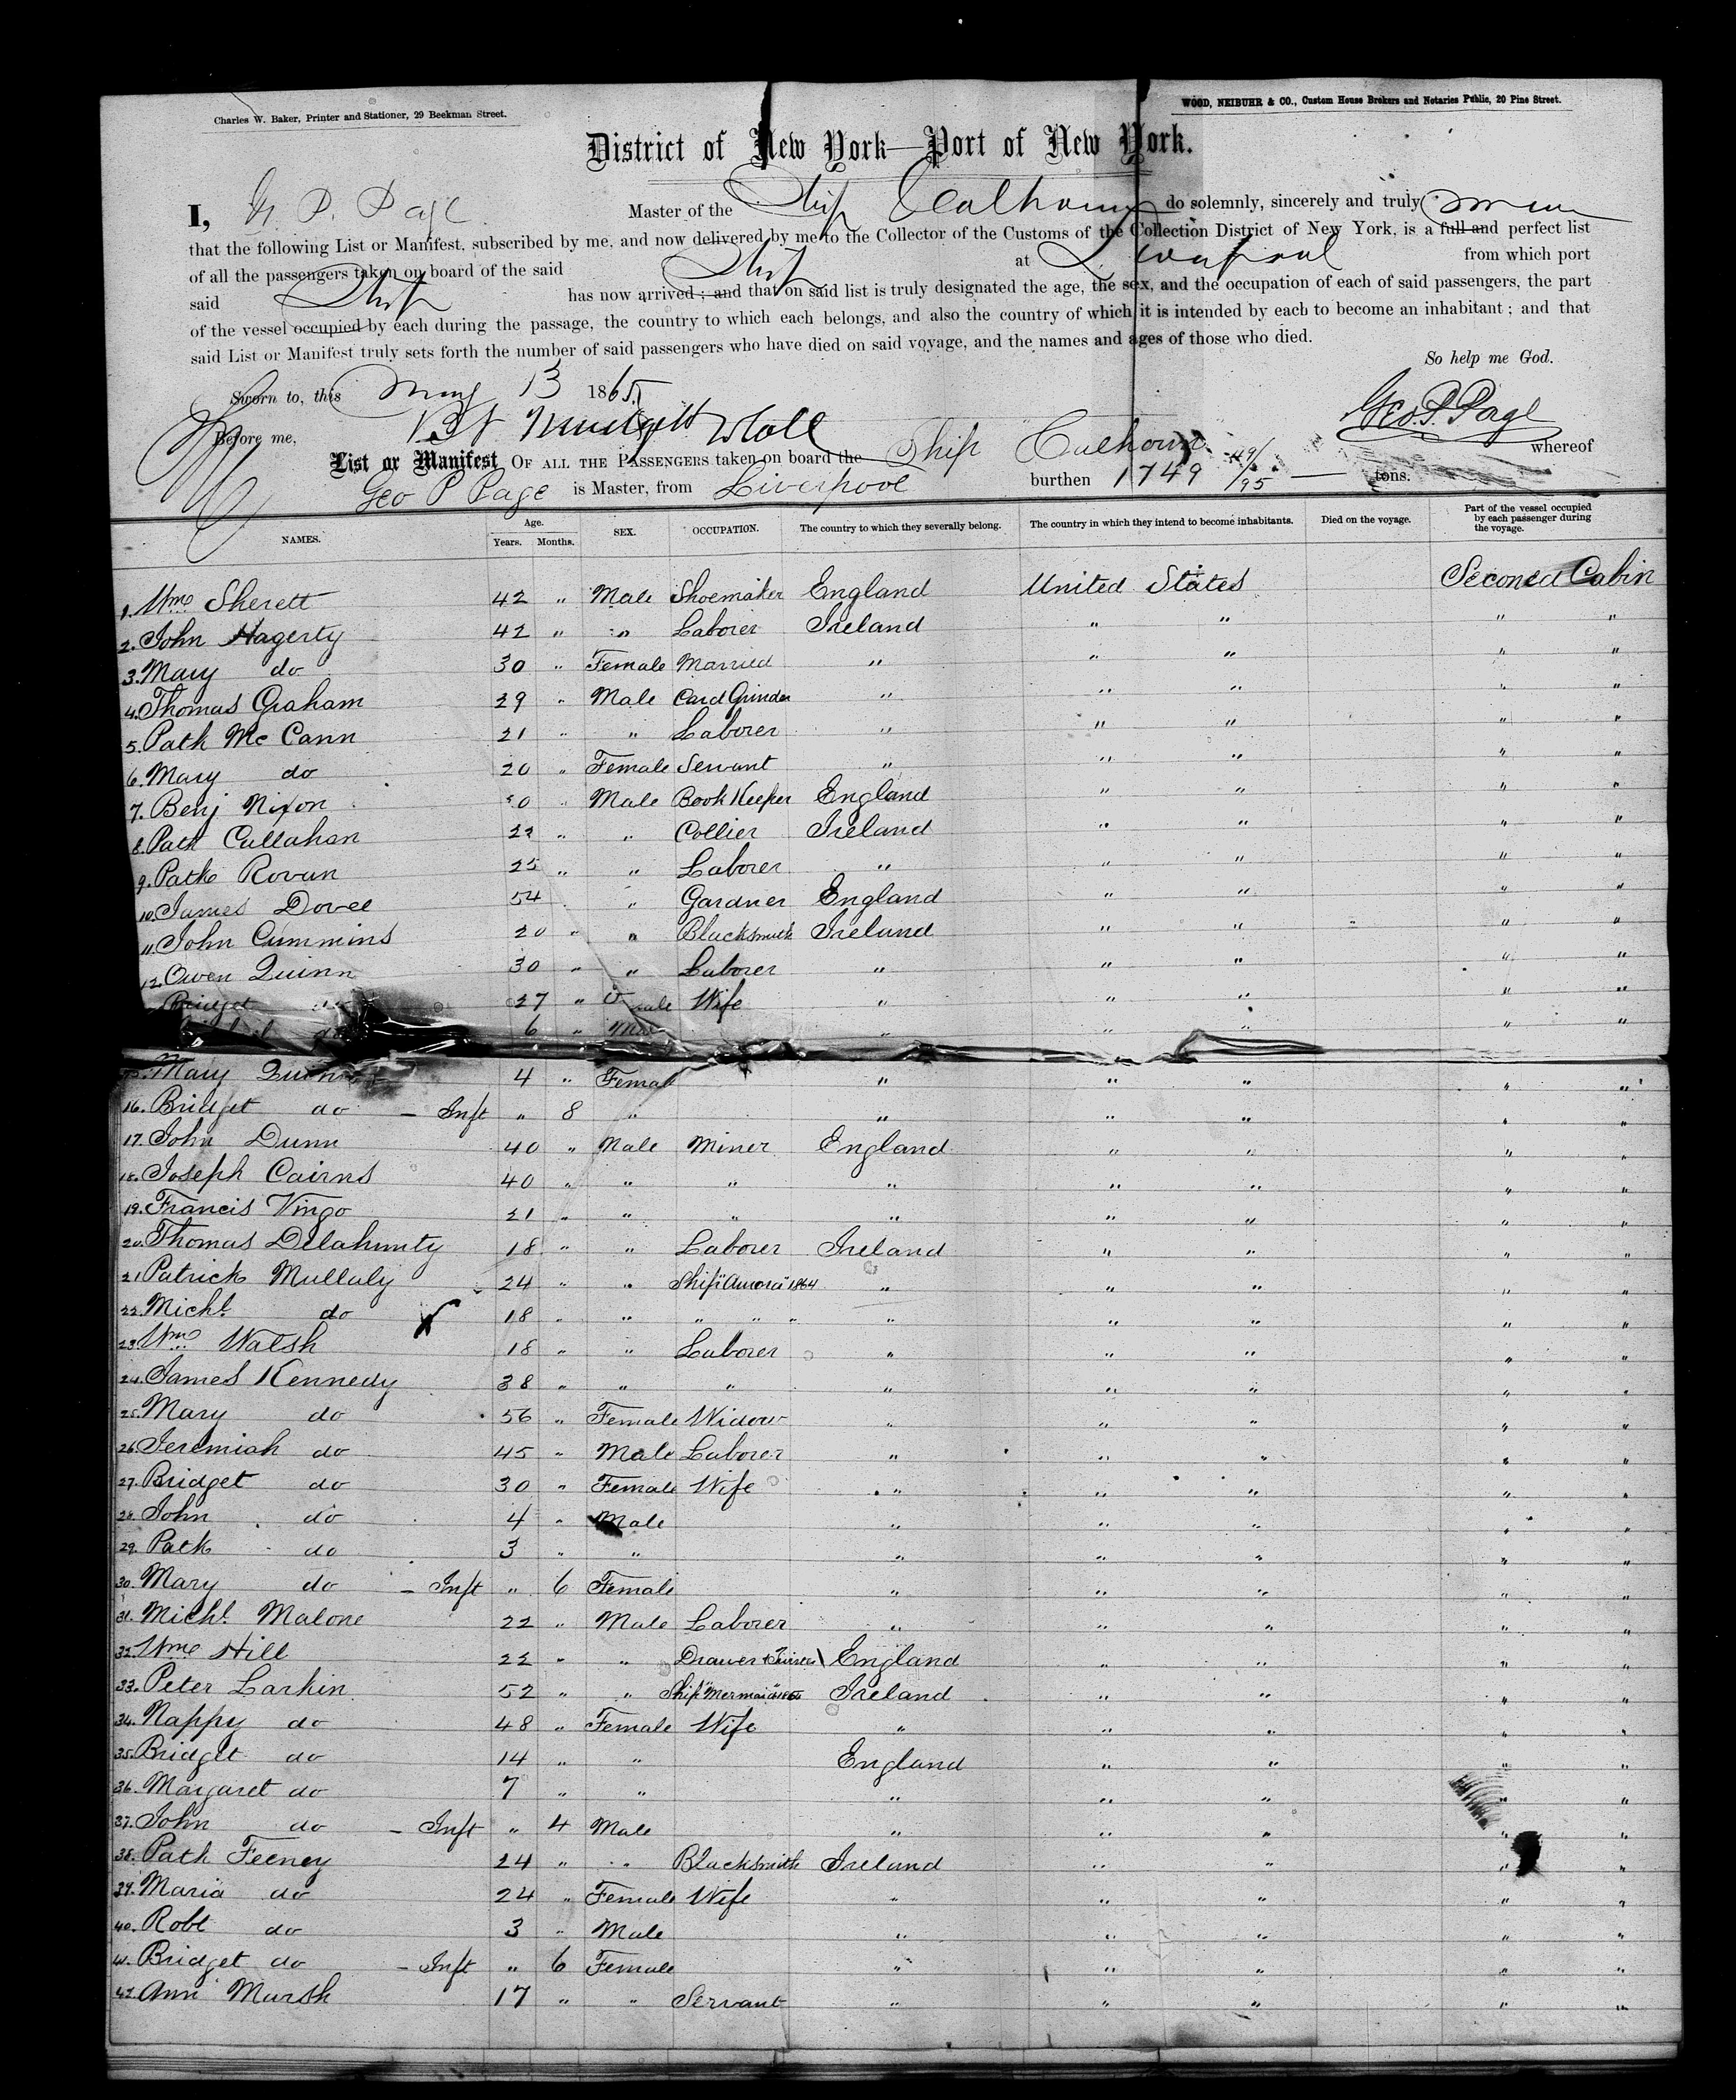 Charles W. Baker, Printer and Stationer, 29 Beekman Street.
WOOD, NEIBUHR & CO., Custom House Brokers and Notaries Public, 20 Pine Street.
District of New York—Port of New York.
I, G. P. Page Master of the Ship Calhoun do solemnly, sincerely and truly swear
that the following List or Manifest, subscribed by me, and now delivered by me to the Collector of the Customs of the Collection District of New York, is a full and perfect list
of all the passengers taken on board of the said Ship at Liverpool from which port
said Ship has now arrived; and that on said list is truly designated the age, the sex, and the occupation of each of said passengers, the part
of the vessel occupied by each during the passage, the country to which each belongs, and also the country of which it is intended by each to become an inhabitant; and that
said List or Manifest truly sets forth the number of said passengers who have died on said voyage, and the names and ages of those who died.
So help me God.
Sworn to, this May 13 1865
Geo. P. Page
Before me,
List or Manifest OF ALL THE PASSENGERS taken on board the Ship Calhoun whereof
Geo P Page is Master, from Liverpool burthen 1749 49/95 tons.
NAMES. Age. Years. Months. SEX. OCCUPATION. The country to which they severally belong. The country in which they intend to become inhabitants. Died on the voyage. Part of the vessel occupied by each passenger during the voyage.
1. Wm Sherett 42 " Male Shoemaker England United States Second Cabin
2. John Hagerty 42 " " Laborer Ireland " " " "
3. Mary do 30 " Female Married " " " " "
4. Thomas Graham 29 " Male Card Grinder " " " " "
5. Patk Mc Cann 21 " " Laborer " " " " "
6. Mary do 20 " Female Servant " " " " "
7. Benj Nixon Male Book Keeper England " " " "
8. Patk Callahan 22 " " Collier Ireland " " " "
9. Patk Rovan 25 " " Laborer " " " " "
10. James Dovee 54 " Gardner England " " " "
11. John Cummins 20 " " Blacksmith Ireland " " " "
12. Owen Quinn 30 " " Laborer " " " " "
Bridget 27 " Wife " " " " "
6 " " " " " "
15. Mary Quinn 4 " Female " " " " "
16. Bridget do - Inft " 8 " " " " " "
17. John Dunn 40 " Male Miner England " " " "
18. Joseph Cairns 40 " " " " " " " "
19. Francis Vingo 21 " " " " " " " "
20. Thomas Delahunty 18 " " Laborer Ireland " " " "
21. Patrick Mullaly 24 " " Ship "Aurora" 1864 " " " " "
22. Michl. do 18 " " " " " " " " " "
23. Wm Walsh 18 " " Laborer " " " " "
24. James Kennedy 38 " " " " " " " "
25. Mary do 56 " Female Widow " " " " "
26. Jeremiah do 45 " Male Laborer " " " " "
27. Bridget do 30 " Female Wife " " " " "
28. John do 4 " Male " " " " "
29. Patk do 3 " " " " " " "
30. Mary do - Inft " 6 Female " " " " "
31. Michl. Malone 22 " Male Laborer " " " " "
32. Wm Hill 22 " " Drawer & Twister England " " " "
33. Peter Larkin 52 " " Ship "Mermaid" Ireland " " " "
34. Nappy do 48 " Female Wife " " " " "
35. Bridget do 14 " " England " " " "
36. Margaret do 7 " " " " " " "
37. John do - Inft " 4 Male " " " " "
38. Patk Feeney 24 " " Blacksmith Ireland " " " "
39. Maria do 24 " Female Wife " " " " "
40. Robt do 3 " Male " " " " "
41. Bridget do - Inft " 6 Female " " " " "
42. Ann Marsh 17 " " Servant " " " " "